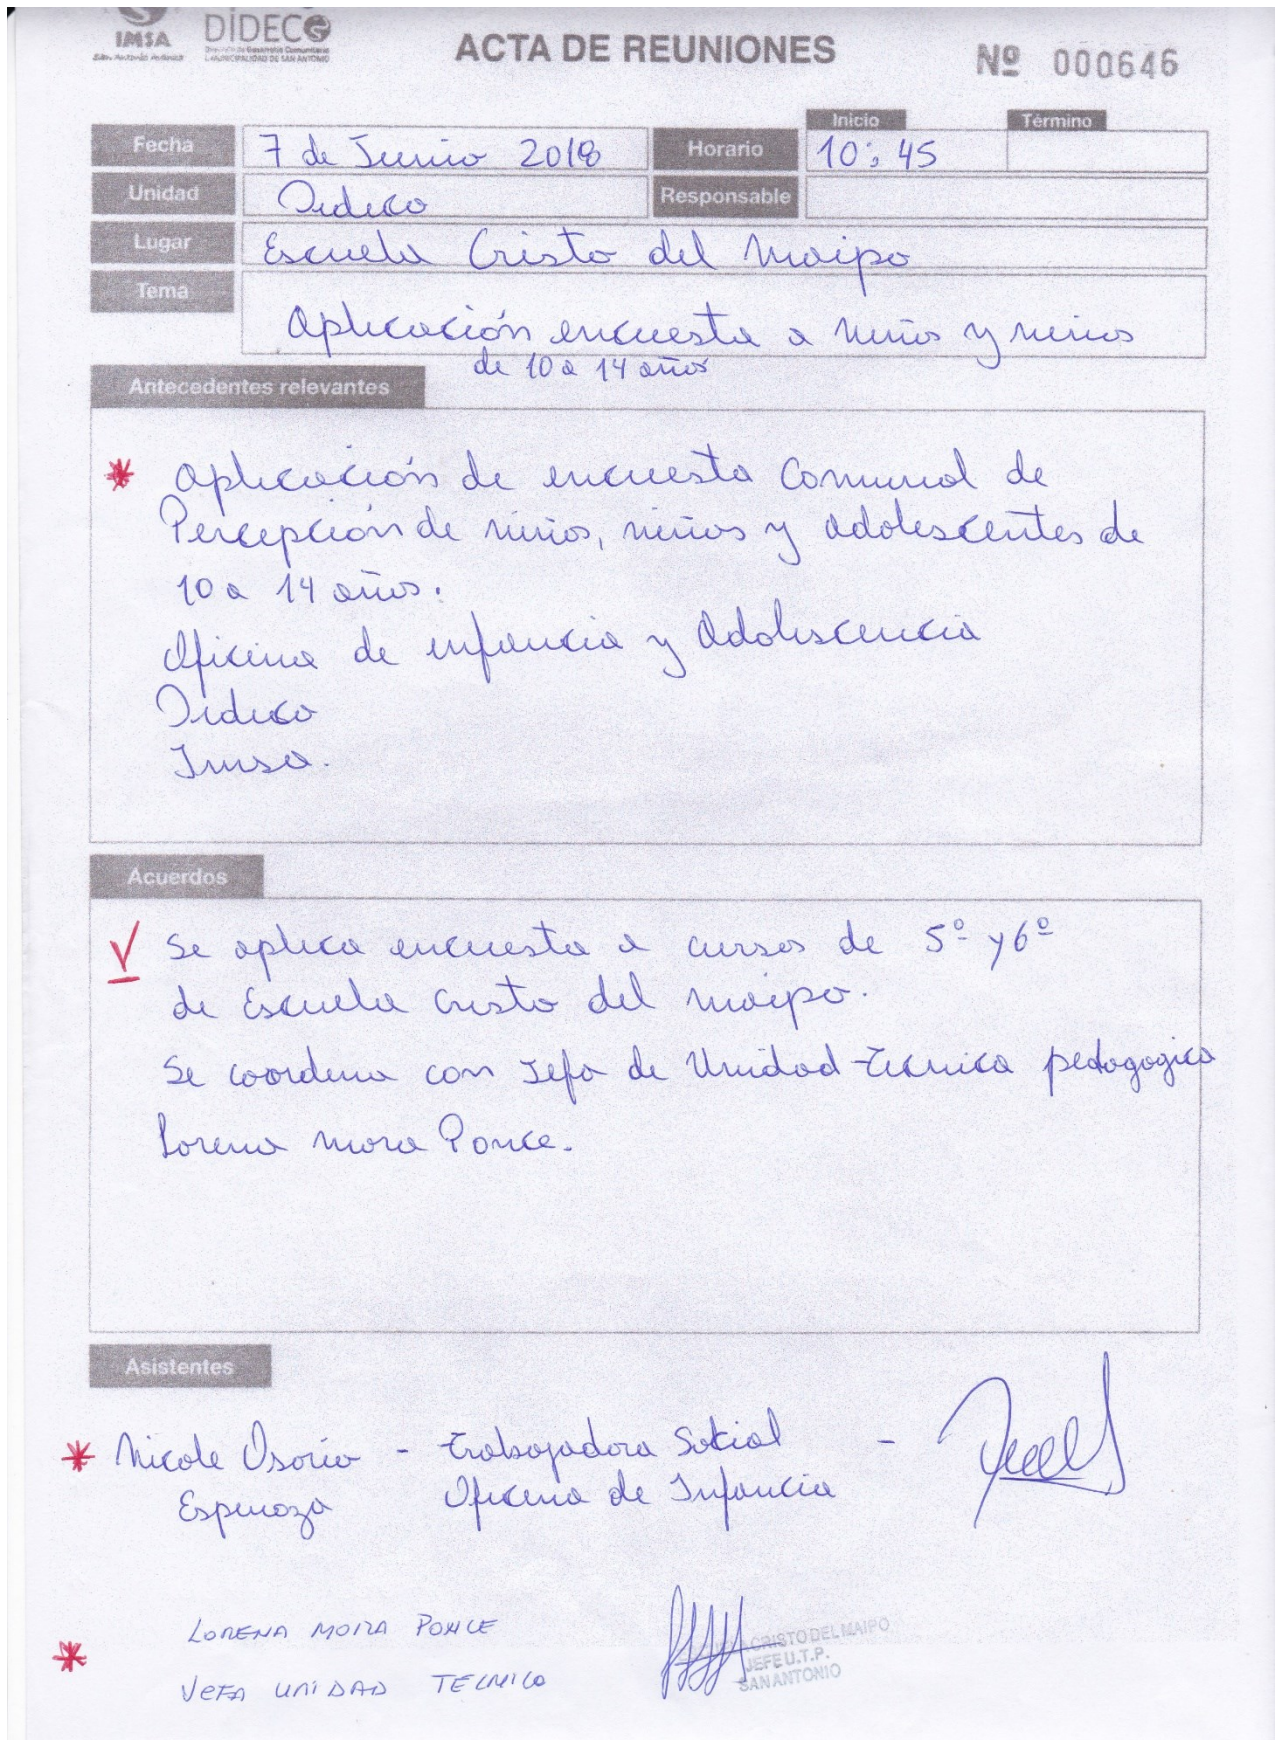 IMSA
DIDECO
Dirección de Desarrollo Comunitario
I. MUNICIPALIDAD DE SAN ANTONIO
ACTA DE REUNIONES
Nº 000646
Inicio Término
Fecha 7 de Junio 2018 Horario 10:45
Unidad Dideco Responsable
Lugar Escuela Cristo del Maipo
Tema
Aplicación encuesta a niños y niños
de 10 a 14 años
Antecedentes relevantes
* Aplicación de encuesta Comunal de
Percepción de niños, niños y Adolescentes de
10 a 14 años.
Oficina de infancia y Adolescencia
Dideco
Imsa.
Acuerdos
Se aplica encuesta a cursos de 5º y 6º
de Escuela Cristo del Maipo.
Se coordena con Jefa de Unidad Técnica pedagogica
Lorena Mora Ponce.
Asistentes
* Nicole Osorio - Trabajadora Social -
Espinoza Oficina de Infancia
LORENA MORA PONCE
*
JEFA UNIDAD TECNICO
CRISTO DEL MAIPO
JEFE U.T.P.
SAN ANTONIO